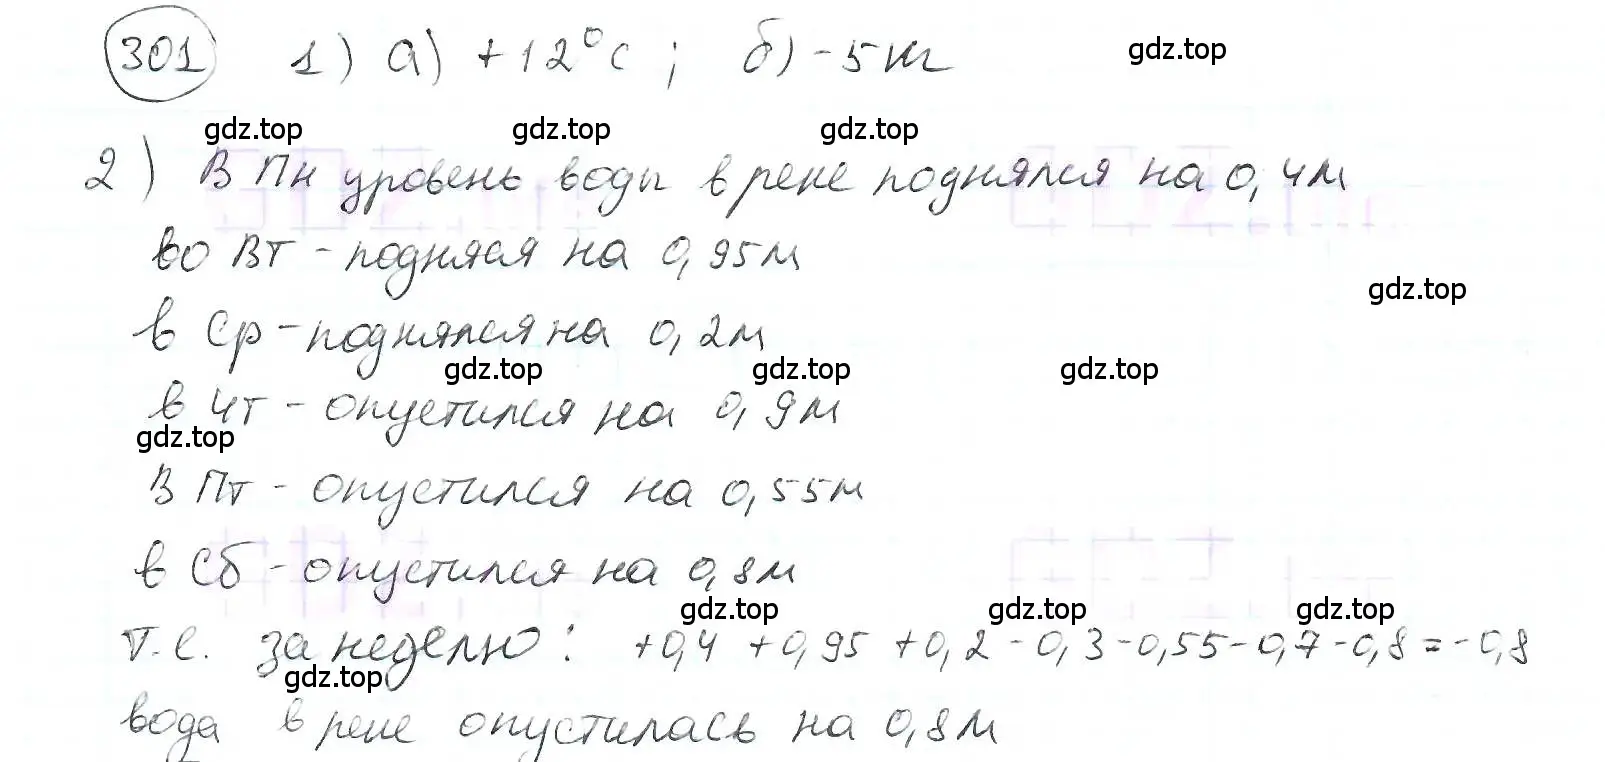 301 1) а) +12°С; б) -5 м gdz.top
gdz.top gdz.top gdz.top
2) В Пн уровень воды в реке поднялся на 0,4м
во Вт - поднялся на 0,95м
gdz.top
в Ср - поднялся на 0,2м
gdz.top gdz.top gdz.top
в Чт - опустился на 0,9м
gdz.top
В Пт - опустился на 0,55м
в Сб - опустился на 0,8м
gdz.top gdz.top gdz.top
т.е. за неделю: +0,4 +0,95 +0,2 -0,3-0,55-0,7-0,8=-0,8
gdz.top
вода в реке опустилась на 0,8м